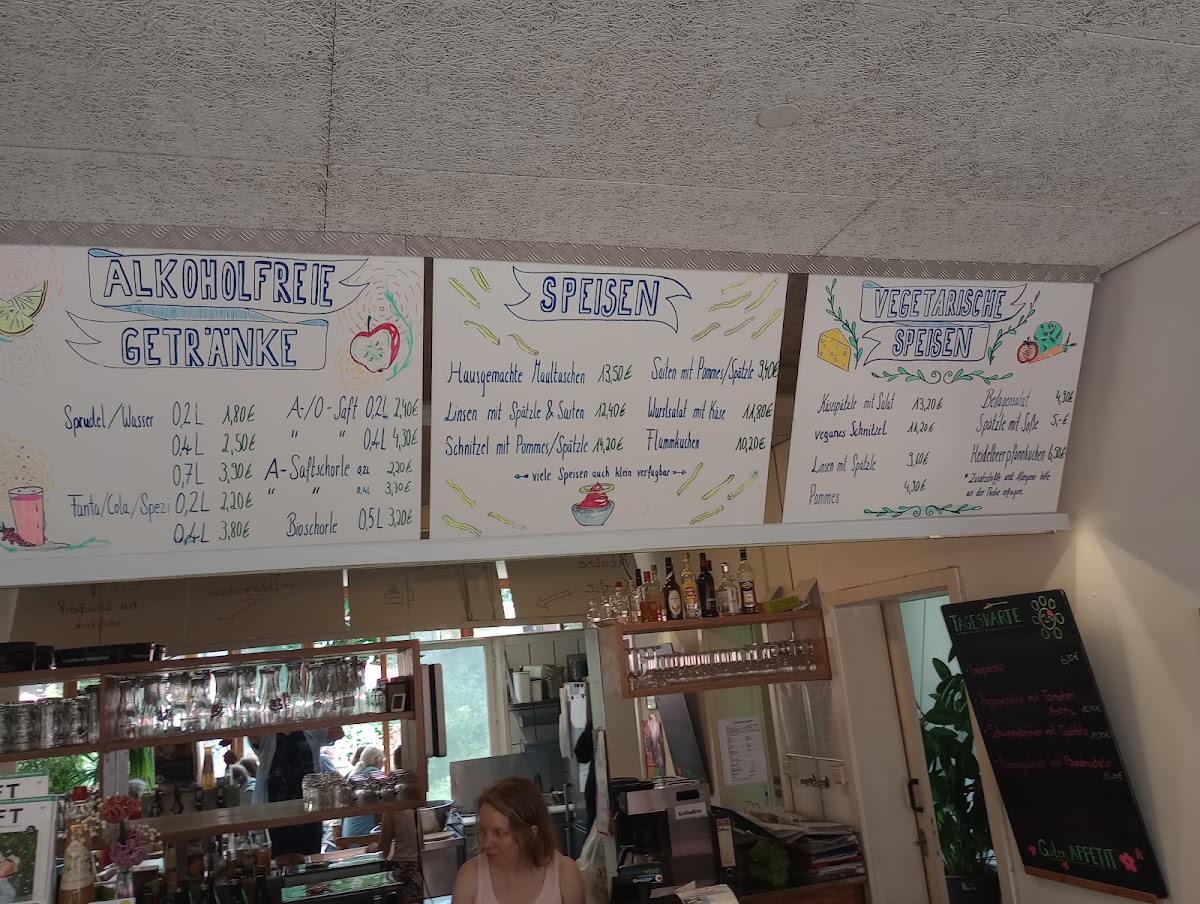 ALKOHOLFREIE
GETRÄNKE
Sprudel/Wasser 0,2 L 1,80 €
0,4 L 2,50 €
0,7 L 3,90 €
Fanta/Cola/Spezi 0,2 L 2,20 €
0,4 L 3,80 €
A-/O-Saft 0,2 L 2,40 €
" " 0,4 L 4,30 €
A-Saftschorle 0,2 L 2,20 €
" " 0,4 L 3,70 €
Bioschorle 0,5 L 3,20 €
SPEISEN
Hausgemachte Maultaschen 13,50 €
Linsen mit Spätzle & Saiten 12,40 €
Schnitzel mit Pommes/Spätzle 14,20 €
Saiten mit Pommes/Spätzle 9,40 €
Wurstsalat mit Käse 11,80 €
Flammkuchen 10,20 €
viele Speisen auch klein verfügbar
VEGETARISCHE
SPEISEN
Käsespätzle mit Salat 13,20 €
veganes Schnitzel 11,20 €
Linsen mit Spätzle 9,60 €
Pommes 4,90 €
Beilagensalat 4,90 €
Spätzle mit Soße 5,- €
Heidelbeerpfannkuchen 6,50 €
*Zusatzstoffe und Allergene bitte
an der Theke erfragen.
nur draußen!
im Untergeschoss
Kleine
TAGESKARTE
Gazpacho 6,20 €
mit Tomaten
Pesto
Schweinebraten mit Spätzle
mit Bandnudeln
Guten APPETIT
FT
FT